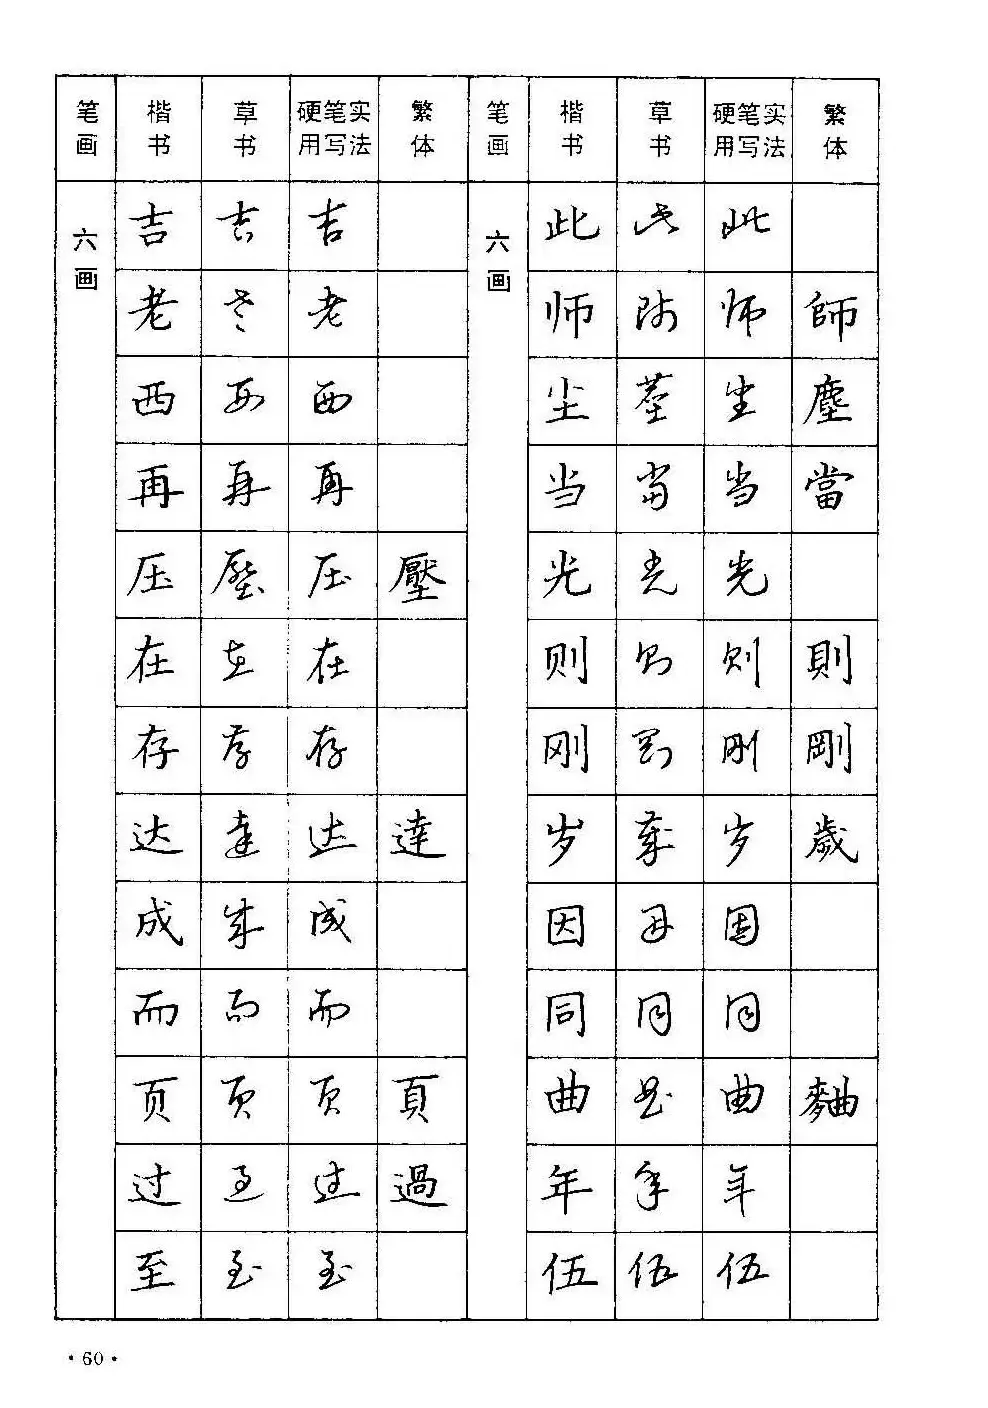 笔画 楷书 草书 硬笔实用写法 繁体 笔画 楷书 草书 硬笔实用写法 繁体
六画 吉 吉 吉 六画 此 此 此
老 老 老 师 师 师 師
西 西 西 尘 塵 尘 塵
再 再 再 当 當 当 當
压 壓 压 壓 光 光 光
在 在 在 则 則 则 則
存 存 存 刚 剛 刚 剛
达 達 达 達 岁 歲 岁 歲
成 成 成 因 因 因
而 而 而 同 同 同
页 页 页 頁 曲 曲 曲 麯
过 过 过 過 年 年 年
至 至 至 伍 伍 伍
·60·